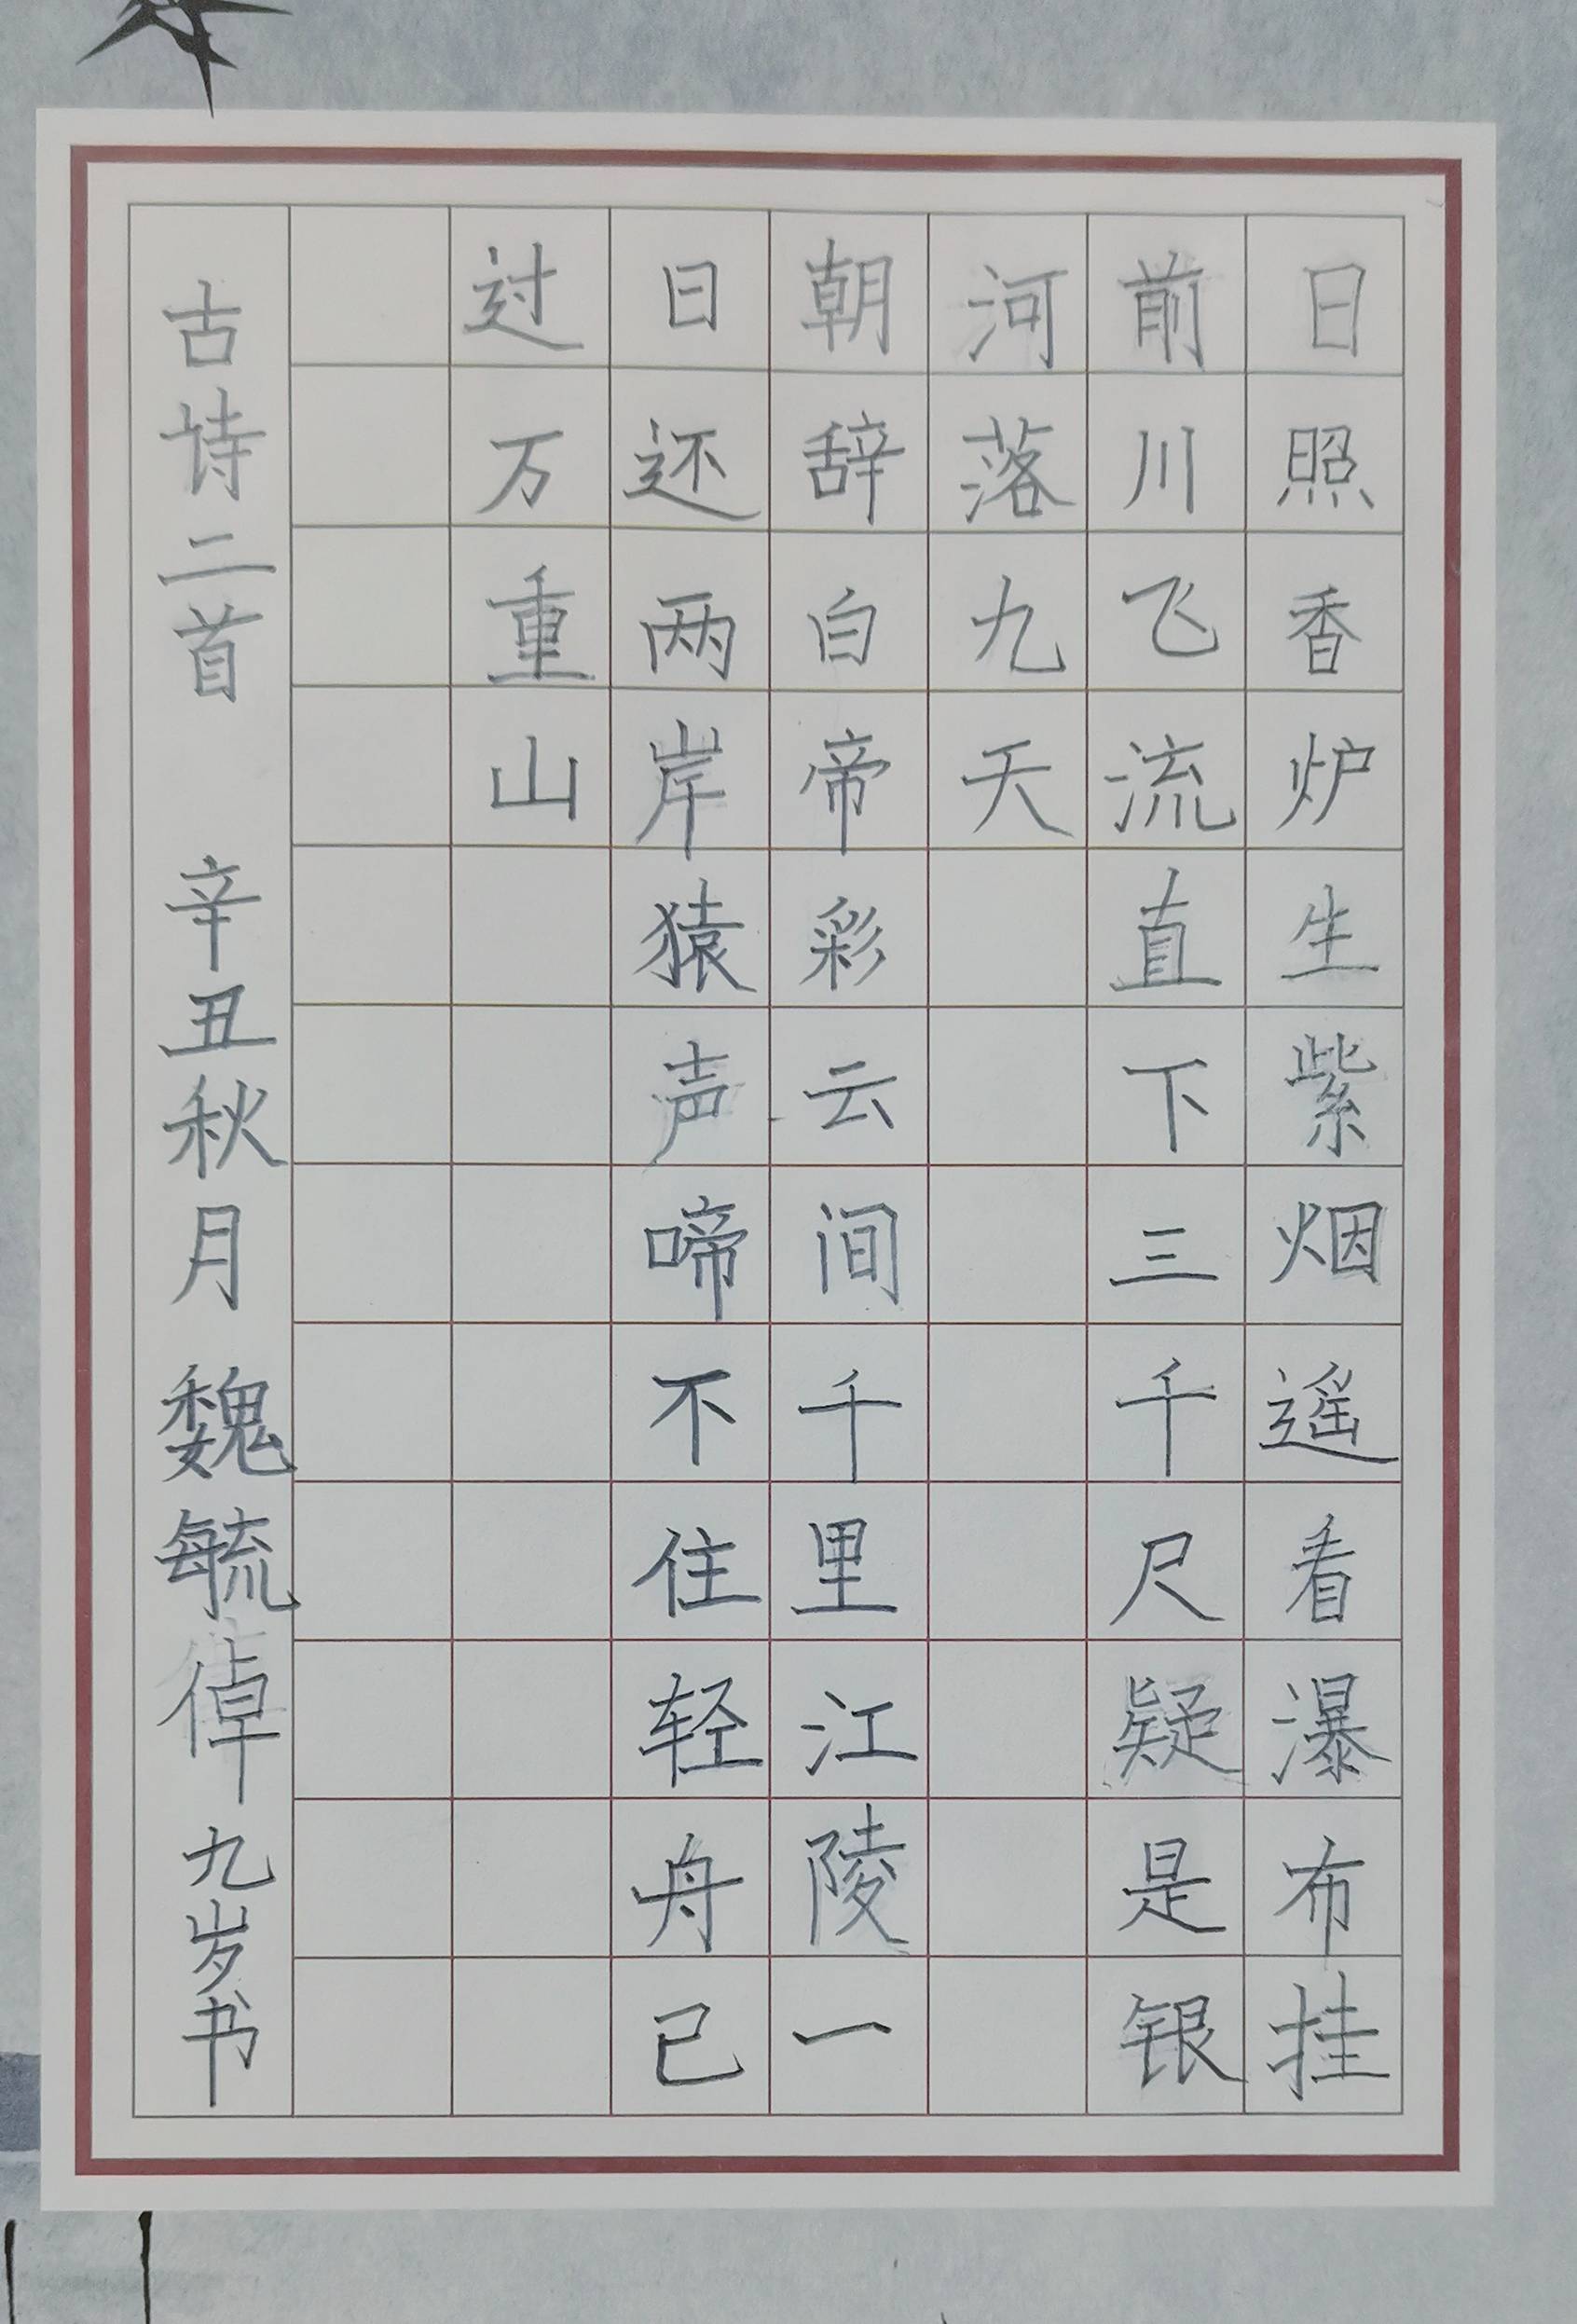 日照香炉生紫烟遥看瀑布挂
前川飞流直下三千尺疑是银
河落九天
朝辞白帝彩云间千里江陵一
日还两岸猿声啼不住轻舟已
过万重山
古诗二首 辛丑秋月 魏毓倬 九岁书